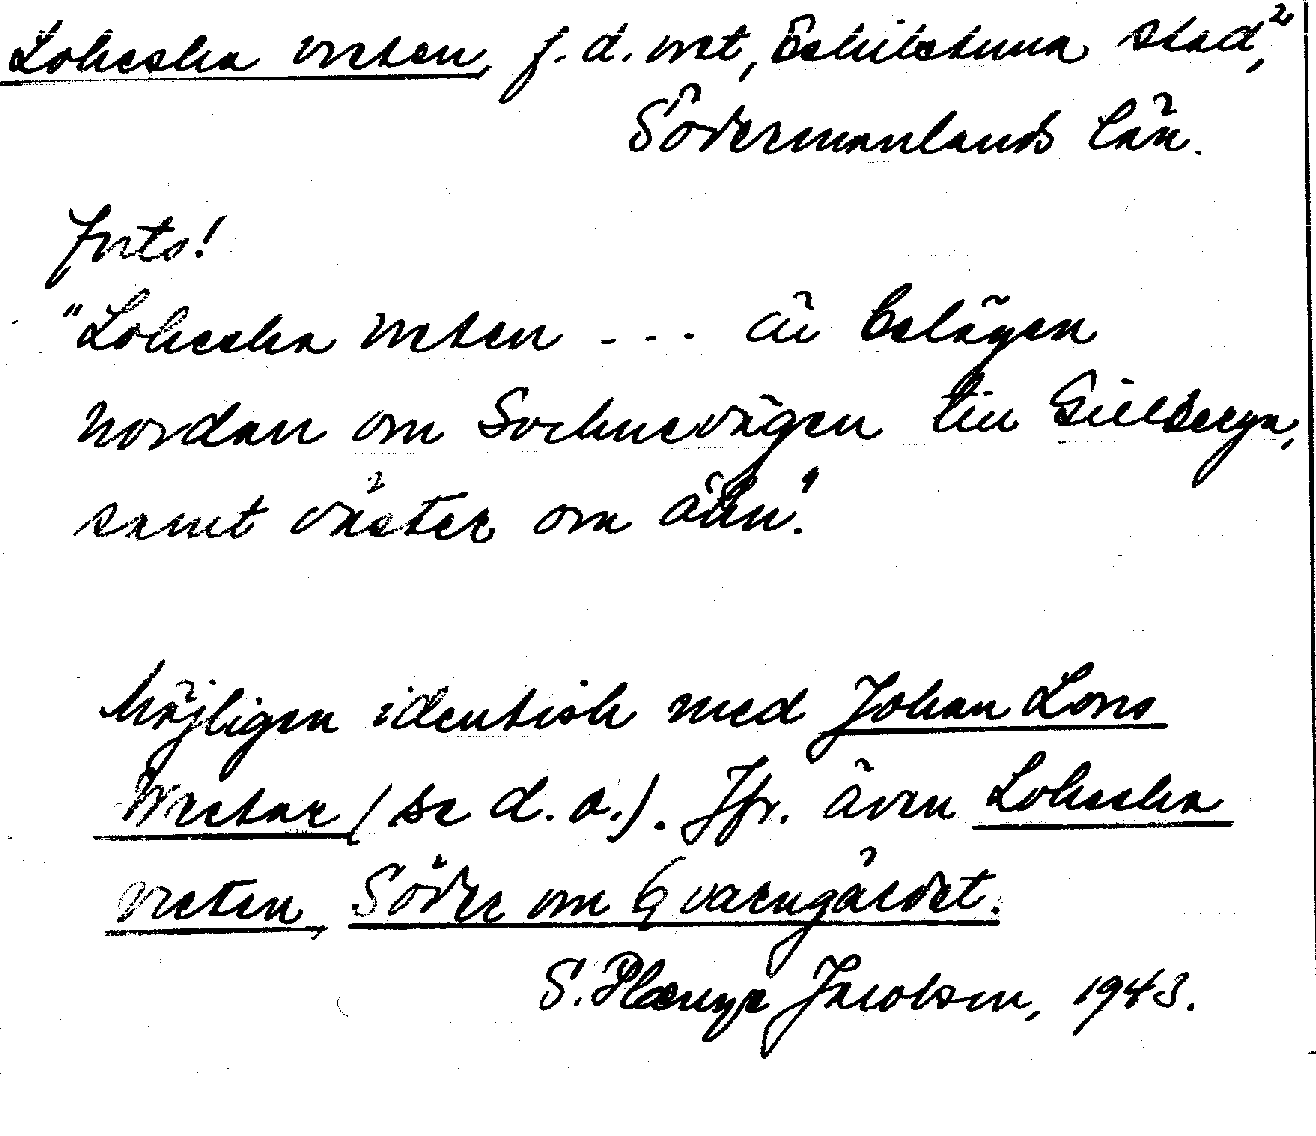 Loheska vreten, f.d. vret, Eskilstuna stad,²
Södermanlands län.
Forts!
"Loheska vreten --- är belägen
nordan om Sochnevägen till Gillberga,
samt väster om åån."
Möjligen identisk med Johan Lohs
Wretar (se d.o.). Jfr. även Loheska
vreten, Söder om Qvarngärdet.
S. Jacobson, 1943.